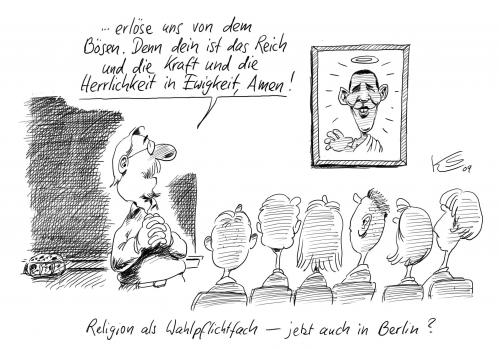 ... erlöse uns von dem
Bösen. Denn dein ist das Reich
und die Kraft und die
Herrlichkeit in Ewigkeit, Amen!
KS 09
Religion als Wahlpflichtfach – jetzt auch in Berlin?